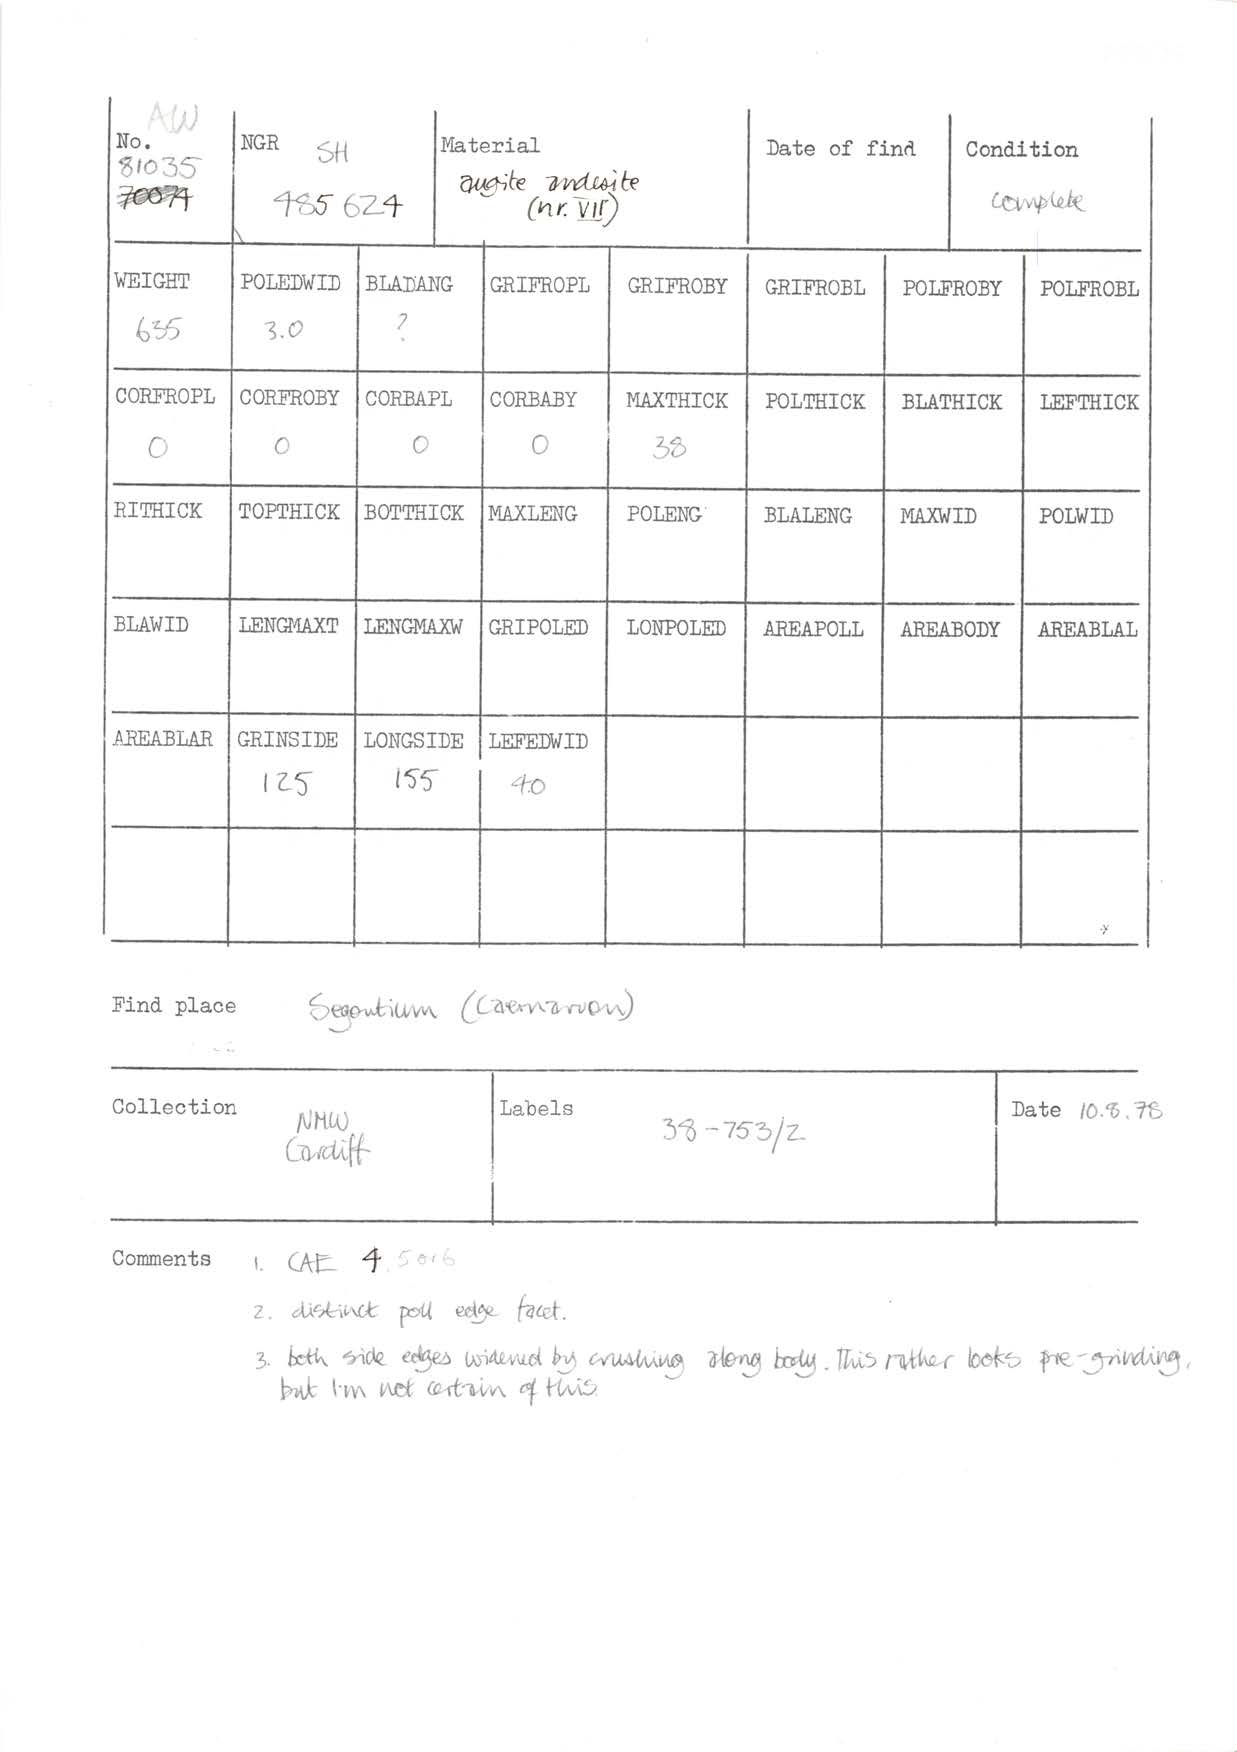 AW
No. NGR SH Material Date of find Condition
81035
70074 485 624 augite andesite (nr. VII) complete
WEIGHT POLEDWID BLADANG GRIFROPL GRIFROBY GRIFROBL POLFROBY POLFROBL
635 3.0 ?
CORFROPL CORFROBY CORBAPL CORBABY MAXTHICK POLTHICK BLATHICK LEFTHICK
0 0 0 0 38
RITHICK TOPTHICK BOTTHICK MAXLENG POLENG BLALENG MAXWID POLWID
BLAWID LENGMAXT LENGMAXW GRIPOLED LONPOLED AREAPOLL AREABODY AREABLAL
AREABLAR GRINSIDE LONGSIDE LEFEDWID
125 155 4.0
Find place Segontium (Caernarvon)
Collection NMW Cardiff Labels 38-753/2 Date 10.8.78
Comments 1. CAE 4. 5016
2. distinct poll edge facet.
3. both side edges widened by crushing along body. This rather looks pre-grinding,
but I'm not certain of this.